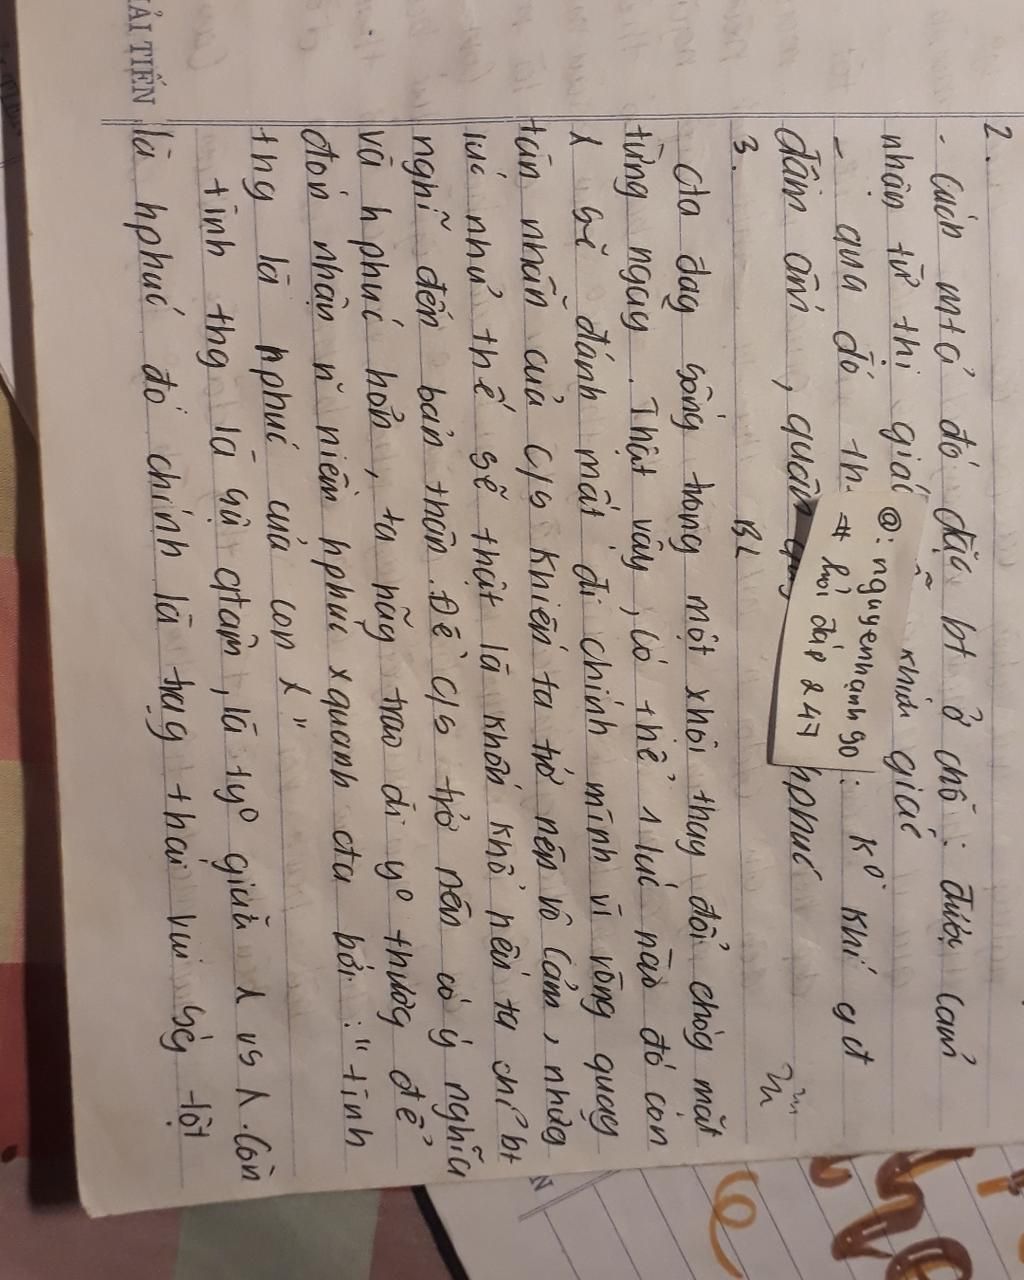 2.
- Cách mtả đó đặc bt ở chỗ : được cảm
nhận từ thị giác khứu giác
- qua đó th : kơ khí gđ
đầm ấm , quân hphúc
3. BL
Cta đag sống trong một xhội thay đổi chóg mặt
từng ngày . Thật vậy , có thể 1 lúc nào đó con
λ sẽ đánh mất đi chính mình vì vòng quay
tàn nhẫn của c/s khiến ta trở nên vô cảm , nhưg
lúc như thế sẽ thật là khốn khổ nếu ta chỉ bt
nghĩ đến bản thân . Để c/s trở nên có ý nghĩa
và hphúc hơn , ta hãy trao đi yº thươg để
đón nhận n~ niềm hphúc xquanh cta bởi : " tình
thg là hphúc của con λ "
tình thg là sự qtâm , là tyº giữa λ vs λ . Còn
là hphúc đó chính là trạg thái vui sg tột
@: nguyenhanh90
# hỏi đáp 247
ẢI TIẾN